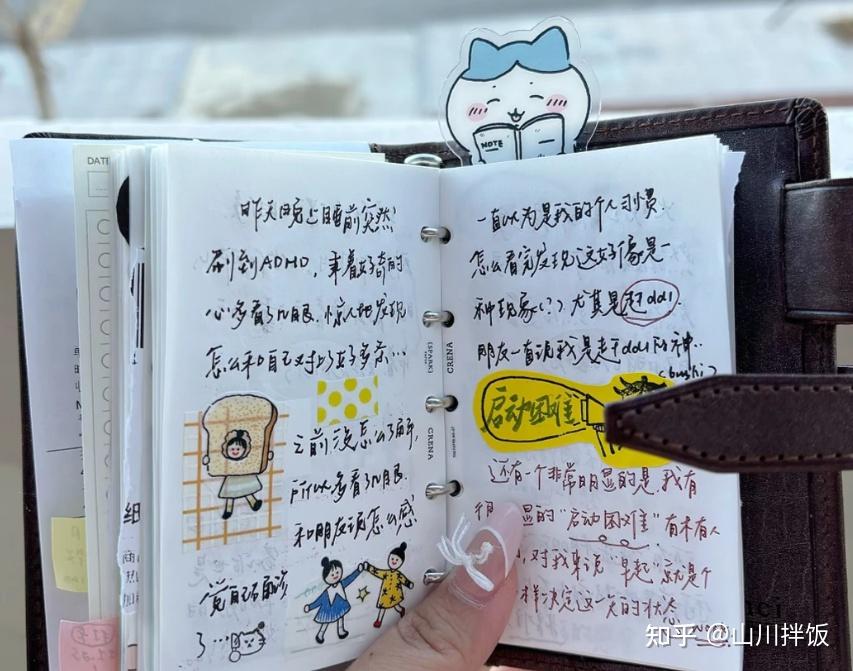 NOTE
DATE
昨天晚上睡前突然
刷到ADHD,本着好奇的
心多看了几眼.惊人地发现
怎么和自己对上了好多条…
之前没怎么了解,
所以多看了几眼.
和朋友说怎么感
觉自己有点
了…
(SPARK)
CRENA
CRENA
一直以为是我的个人习惯
怎么看完发现这好像是一
种现象(?)尤其是赶ddl.
朋友一直说我是赶ddl的神..
(bushi)
启动困难
还有一个非常明显的是.我有
很 显的"启动困难"有木有人
,对我来说"早起"就是个
样决定这一天的状态
知乎 @山川拌饭